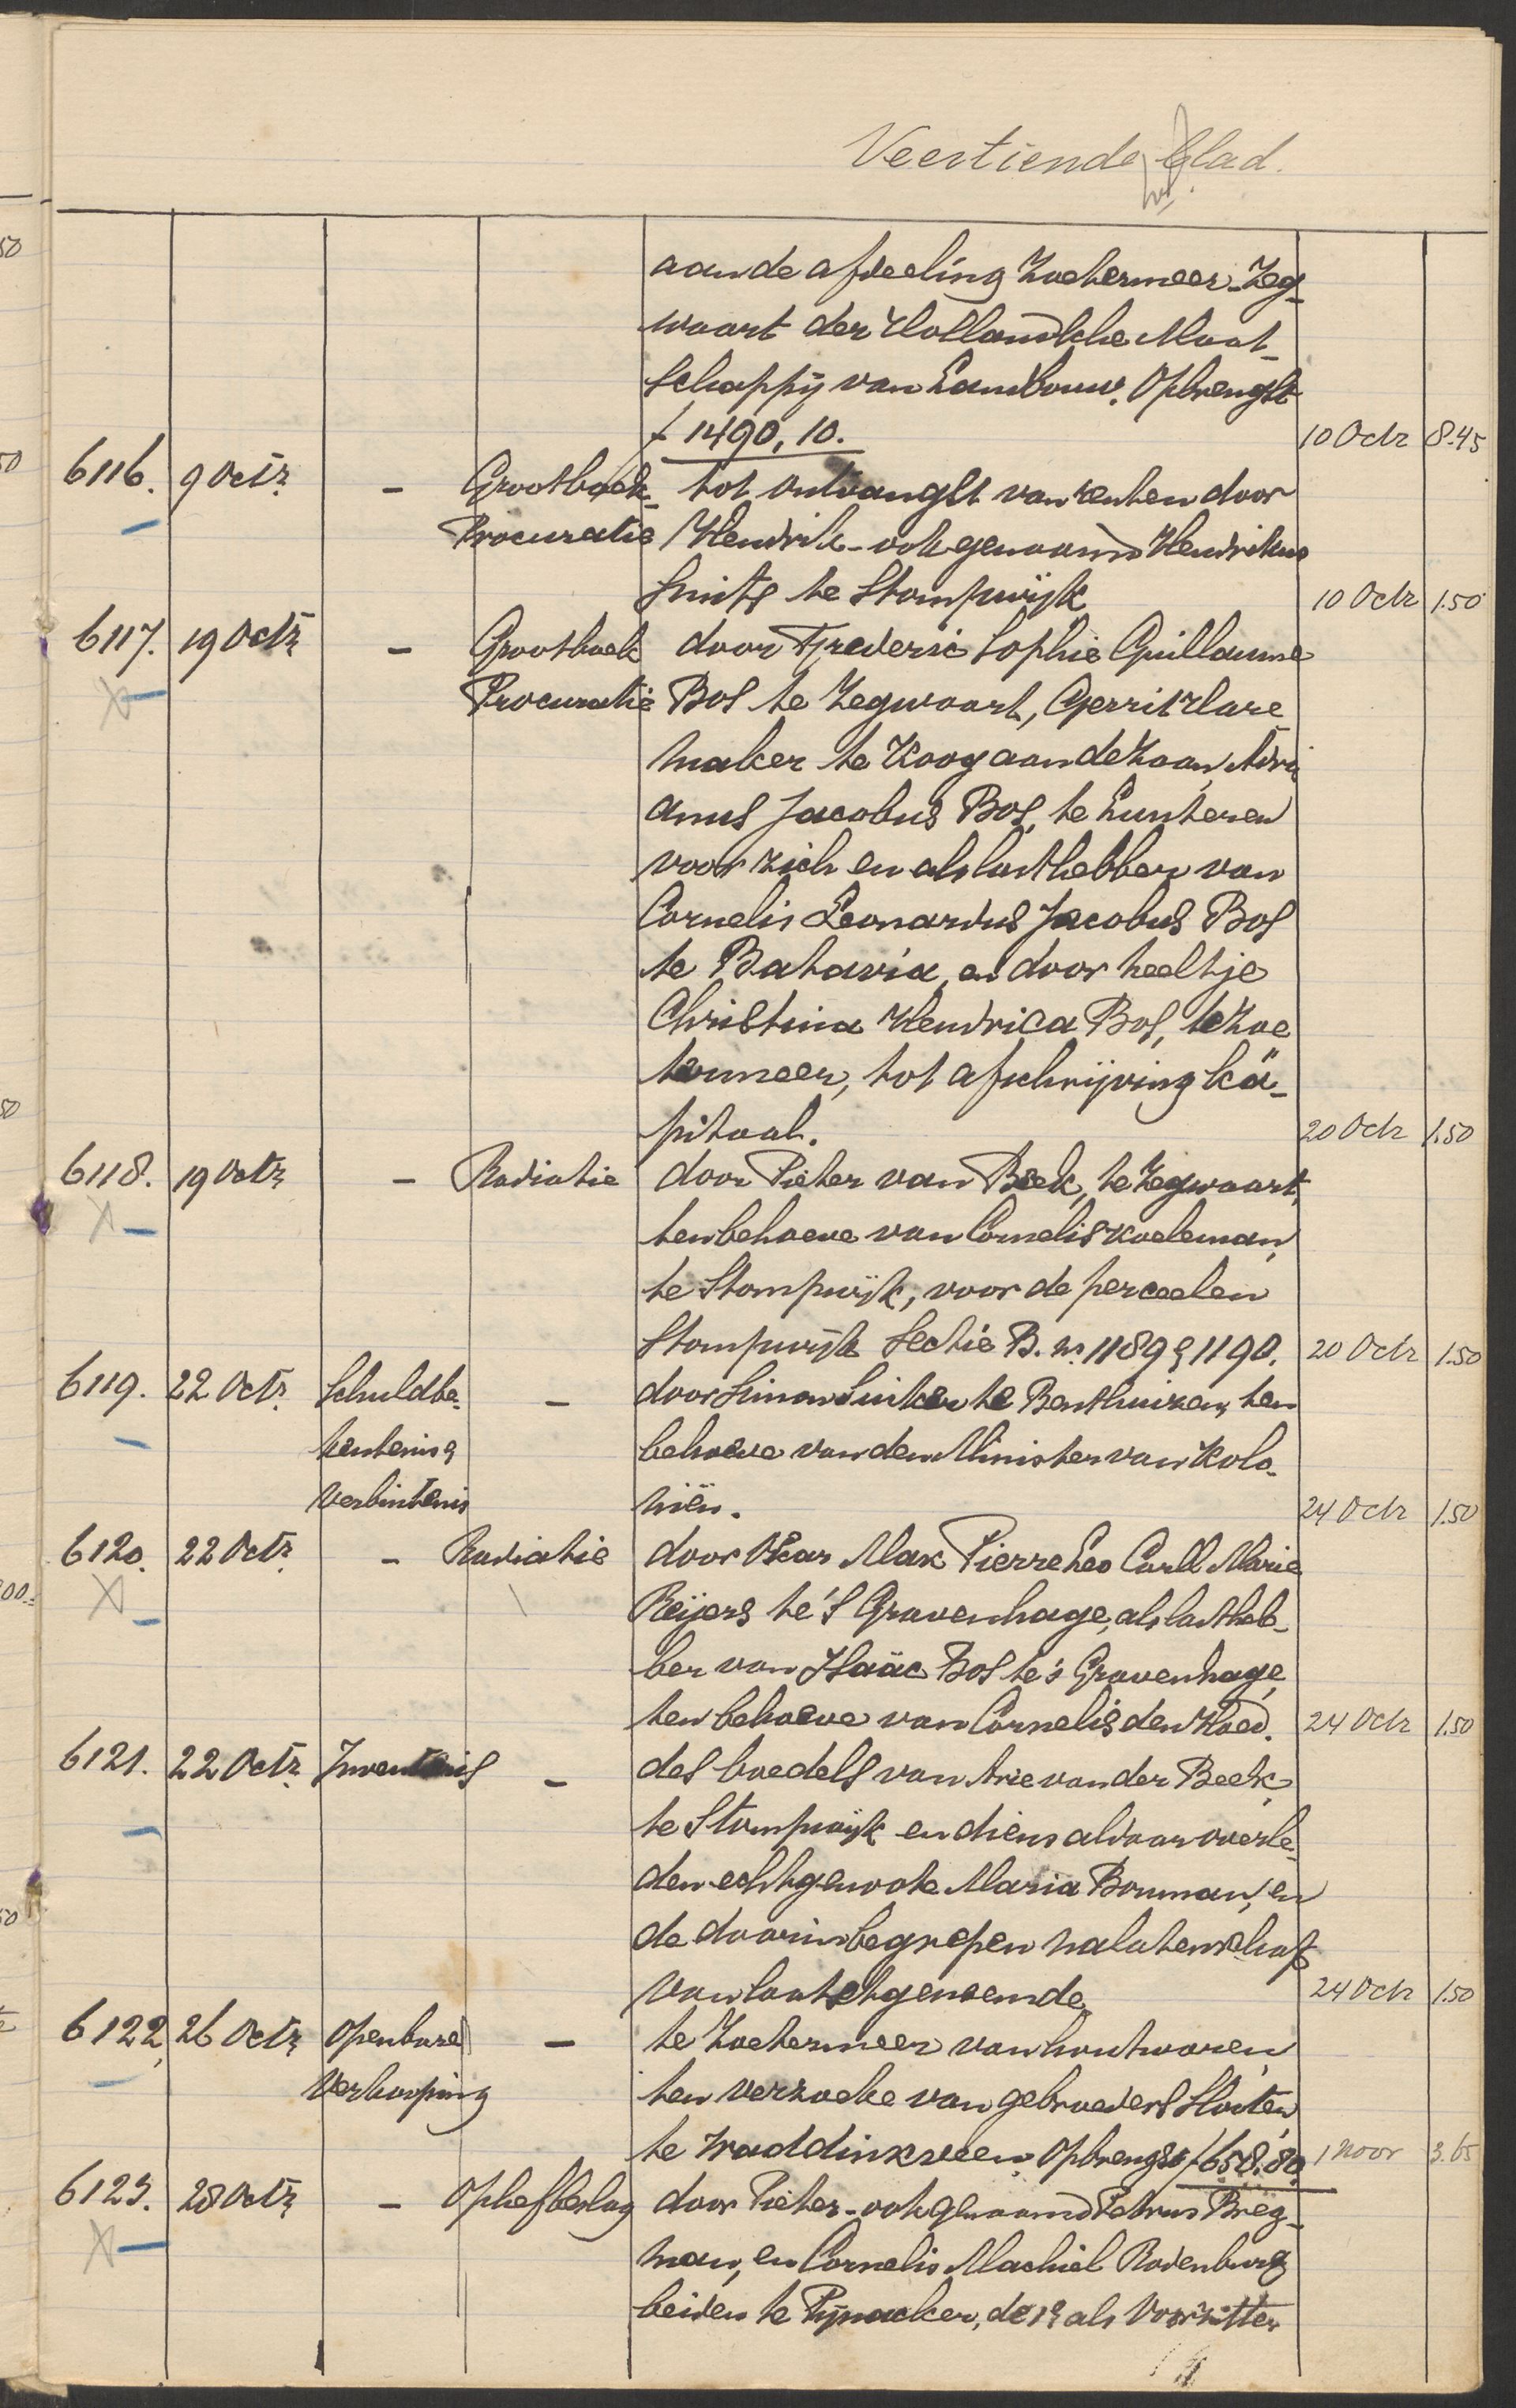 Veertiende blad.
aan de afdeeling Zoetermeer-Zeg-
waart der Hollandsche Maat-
schappij van Landbouw. Opbrengst
f 1490,10. 10 Octr 8.45
6116. 9 Octr. - Grootboek- tot ontvangst van renten door
Procuratie Hendrik-ook genaamd Hendrikus
Smits te Stompwijk 10 Octr 1.50
6117. 19 Octr. - Grootboek door Frederic Sophie Guillaume
Procuratie Bos te Zegwaart, Gerrit Klare
maker te Koog aan de Zaan, Adri
anus Jacobus Bos, te Lunteren
voor zich en als lasthebber van
Cornelis Leonardus Jacobus Bos
te Batavia, en door Neeltje
Christina Hendrica Bos, te Zoe
termeer, tot afschrijving ka-
pitaal. 20 Octr 1.50
6118. 19 Octr. - Radiatie door Pieter van Beek, te Zegwaart,
ten behoeve van Cornelis Koeleman,
te Stompwijk, voor de perceelen
Stompwijk Sectie B. nr. 1189 & 1190. 20 Octr 1.50
6119. 22 Octr. Schuldbe- - door Simon Luiken te Benthuizen, ten
kentenis & behoeve van den Minister van Kolo-
verbintenis niën. 24 Octr 1.50
6120. 22 Octr. - Radiatie door Oscar Max Pierre Leo Carll Marie
Reijers te 's Gravenhage, als lastheb-
ber van Isaäc Bos te 's Gravenhage,
ten behoeve van Cornelis den Hoed. 24 Octr 1.50
6121. 22 Octr. Inventaris - des boedels van Arie van der Beek,
te Stompwijk en diens aldaar overle-
den echtgenoote Maria Bouman, en
de daarin begrepen nalatenschap
van laatstgenoemde. 24 Octr 1.50
6122. 26 Octr. Openbare - te Zoetermeer van houtwaren,
Verkooping ten verzoeke van gebroeders Slooten
te Waddinxveen, Opbrengst f 658,80 1 Novr 3.65
6123. 28 Octr. - Ophef beslag door Pieter-ook genaamd Petrus Breg-
man, en Cornelis Machiel Rodenburg
beiden te Pijnacker, de 1e als Voorzitter